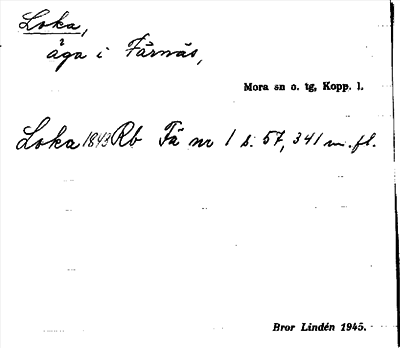 Loka,
åga i Färnäs,
Mora sn o. tg, Kopp. l.
Loka 1843 Rb Fä nr 1 s. 57, 341 m. fl.
Bror Lindén 1945.